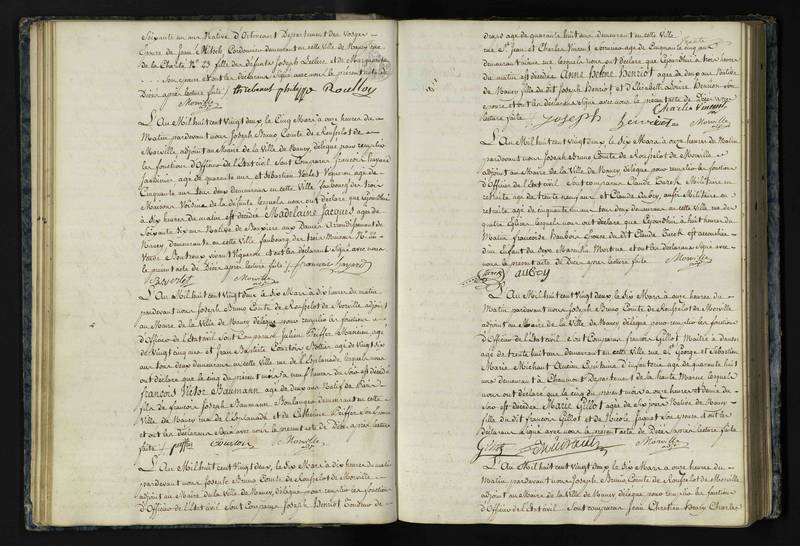 Soixante un ans Native d'Ortoncourt Departement des Vosges
Epouse de Jean Mitsch Cordonnier demeurant en cette Ville de Nancy rue
de la Charité N° 23 fille des défunts Joseph Leclerc et de Marguerite
Son epouse et ont les déclarans Signé avec nous le présent acte de
Décès après lecture faite / Philippe Rouillon
Morville
L'An Mil huit cent Vingt deux le Cinq Mars à onze heures du
Matin pardevant nous Joseph Bruno Comte de Rousselot de
Morville, adjoint au Maire de la Ville de Nancy, délégué pour remplir
les fonctions d'Officier de l'Etat civil Sont Comparus François
Jardinier agé de quarante ans et Sébastien Vigneron agé de
Cinquante ans tous deux demeurans en cette Ville faubourg des trois
Maisons Voisins de la défunte lesquels nous ont déclaré que Cejourd'hui
à Six heures du matin est décédée Madelaine Jacques agée de
Soixante Six ans Native de
Nancy demeurante en cette Ville faubourg des trois Maisons N°
Veuve et ont les déclarans Signé avec nous
le présent acte de Décès après lecture faite /
Morville
L'An Mil huit cent Vingt deux le Six Mars à dix heures du matin
pardevant nous Joseph Bruno Comte de Rousselot de Morville adjoint
au Maire de la Ville de Nancy délégué pour remplir les fonctions
d'Officier de l'Etat civil Sont Comparus Julien Peiffer agé
de Vingt cinq ans et Jean Baptiste Courton Sellier agé de Vingt Six
ans tous deux demeurans en cette Ville rue de l'Esplanade lesquels nous
ont déclaré que le Cinq du présent mois à neuf heures du Soir est décédé
François Victor Baumann agé de deux ans Natif de Paris
fils de François Joseph Baumann Boulanger demeurant en cette
Ville de Nancy rue de l'Esplanade et de Catherine Peiffer Son Epouse
et ont les déclarans Signé avec nous le présent acte de Décès après lecture
faite / peiffer Courton Morville
L'An Mil huit cent Vingt deux, le Six Mars à dix heures du matin
pardevant nous Joseph Bruno Comte de Rousselot de Morville
adjoint au Maire de la Ville de Nancy, délégué pour remplir les fonctions
d'Officier de l'Etat civil Sont Comparus Joseph
agé de quarante huit ans demeurant en cette Ville
rue St Jean et Charles Vincent agé de Cinquante cinq ans
demeurant même rue lesquels nous ont déclaré que Cejourd'hui à trois heures
du matin est décédée Anne Helene Henriot agée de deux ans Native
de Nancy fille du dit Joseph Henriot et d'Elisabeth Son
epouse et ont les déclarans Signé avec nous le présent acte de Décès après
lecture faite / Charles Vincent
Joseph henriot Morville
L'An Mil huit cent Vingt deux, le Six Mars à onze heures du Matin
pardevant nous Joseph Bruno Comte de Rousselot de Morville
adjoint au Maire de la Ville de Nancy délégué pour remplir les fonctions
d'Officier de l'Etat civil Sont comparus Claude Turck Militaire en
retraite agé de trente neuf ans et Claude Aubry aussi Militaire en
retraite agé de cinquante ans tous deux demeurans en cette Ville rue des
quatre Eglises lesquels nous ont déclaré que Cejourd'hui à huit heures du
Matin françoise Epouse du dit Claude Turck est accouchée
d'un Enfant du Sexe Masculin Mort né et ont les déclarans Signé avec
nous le présent acte de Décès après lecture faite Morville
turck auBry
L'An Mil huit cent Vingt deux le Six Mars à onze heures du
Matin pardevant nous Joseph Bruno Comte de Rousselot de Morville
adjoint au Maire de la Ville de Nancy délégué pour remplir les fonctions
d'Officier de l'Etat civil Sont Comparus françois Gillot Maître à danser
agé de trente huit ans demeurant en cette Ville rue St George et Sébastien
Marie Michaut Ancien Capitaine d'infanterie agé de quarante huit
ans demeurant à Chaumont département de la haute Marne lesquels
nous ont déclaré que le Cinq du présent mois à onze heures et demie du
Soir est décédée Marie Gillot agée de Six jours Native de Nancy
fille du dit françois Gillot et de Nicole Jaquet Son épouse et ont les
déclarans Signé avec nous le présent acte de Décès après lecture faite
Gillot Michaut Morville
L'An Mil huit cent Vingt deux le Six Mars à onze heures du
Matin, pardevant nous Joseph Bruno Comte de Rousselot de Morville
adjoint au Maire de la Ville de Nancy délégué pour remplir les fonctions
d'Officier de l'Etat civil Sont comparus Jean Chretien Henry Charles